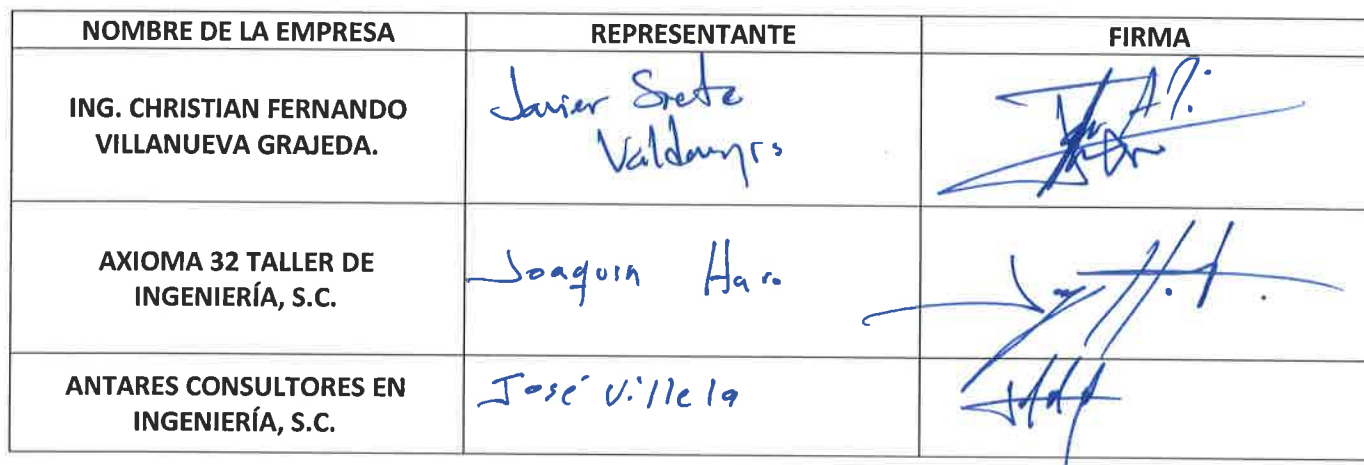 NOMBRE DE LA EMPRESA REPRESENTANTE FIRMA
ING. CHRISTIAN FERNANDO
VILLANUEVA GRAJEDA.
Javier
AXIOMA 32 TALLER DE
INGENIERÍA, S.C.
Joaquin Haro
ANTARES CONSULTORES EN
INGENIERÍA, S.C.
José Villela